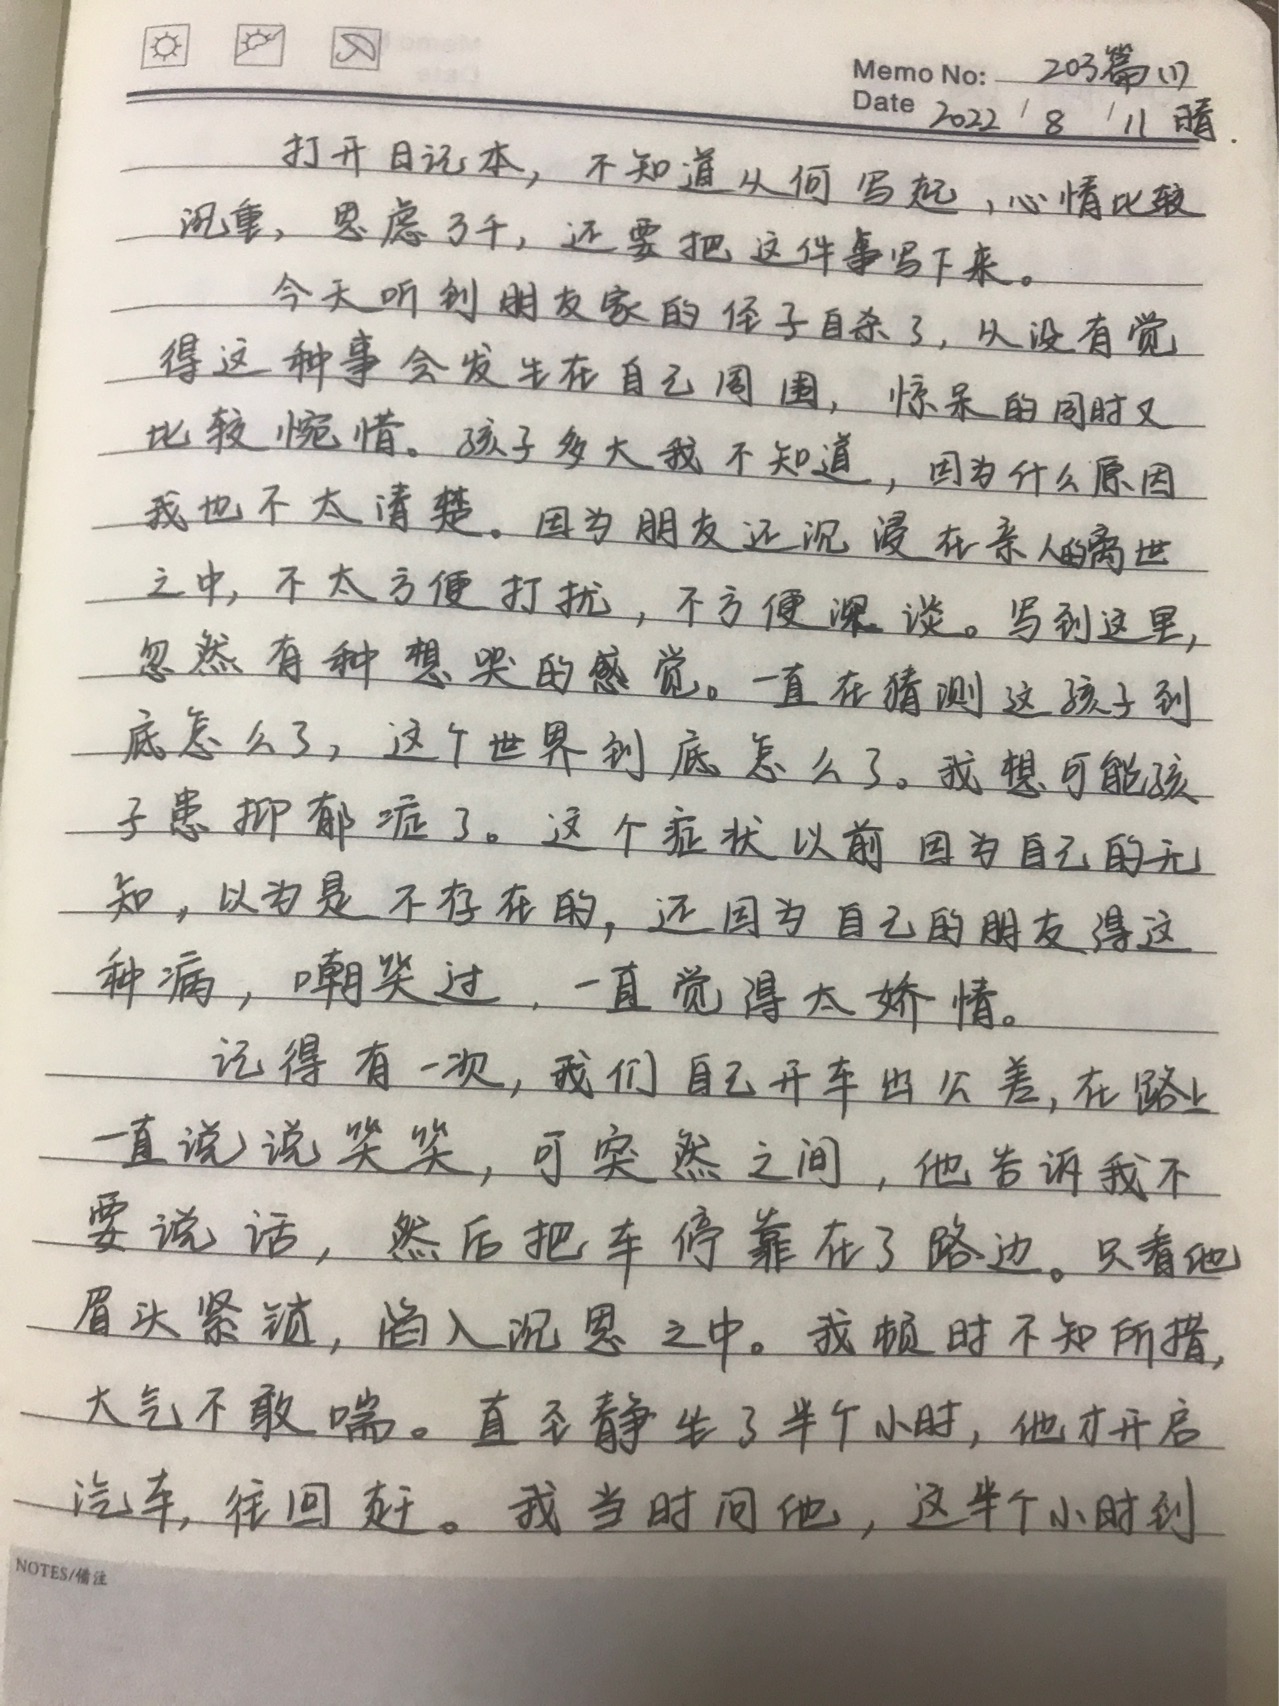 Memo No: 203篇(1)
Date 2022/8/11 晴.
打开日记本，不知道从何写起，心情比较
沉重，思虑了千，还要把这件事写下来。
今天听到朋友家的侄子自杀了，从没有觉
得这种事会发生在自己周围，惊呆的同时又
比较惋惜。孩子多大我不知道，因为什么原因
我也不太清楚。因为朋友还沉浸在亲人的离世
之中，不太方便打扰，不方便深谈。写到这里，
忽然有种想哭的感觉。一直在猜测这孩子到
底怎么了，这个世界到底怎么了。我想可能孩
子患抑郁症了。这个症状以前因为自己的无
知，以为是不存在的，还因为自己的朋友得这
种病，嘲笑过，一直觉得太娇情。
记得有一次，我们自己开车出公差，在路上
一直说说笑笑，可突然之间，他告诉我不
要说话，然后把车停靠在了路边。只看他
眉头紧锁，陷入沉思之中。我顿时不知所措，
大气不敢喘。直至静坐了半个小时，他才开启
汽车，往回赶。我当时问他，这半个小时到
NOTES/備注